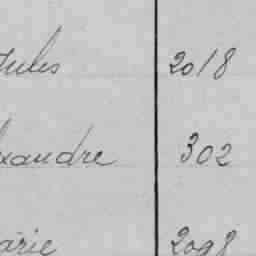 Jules 2018
exandre 302
arie 2098